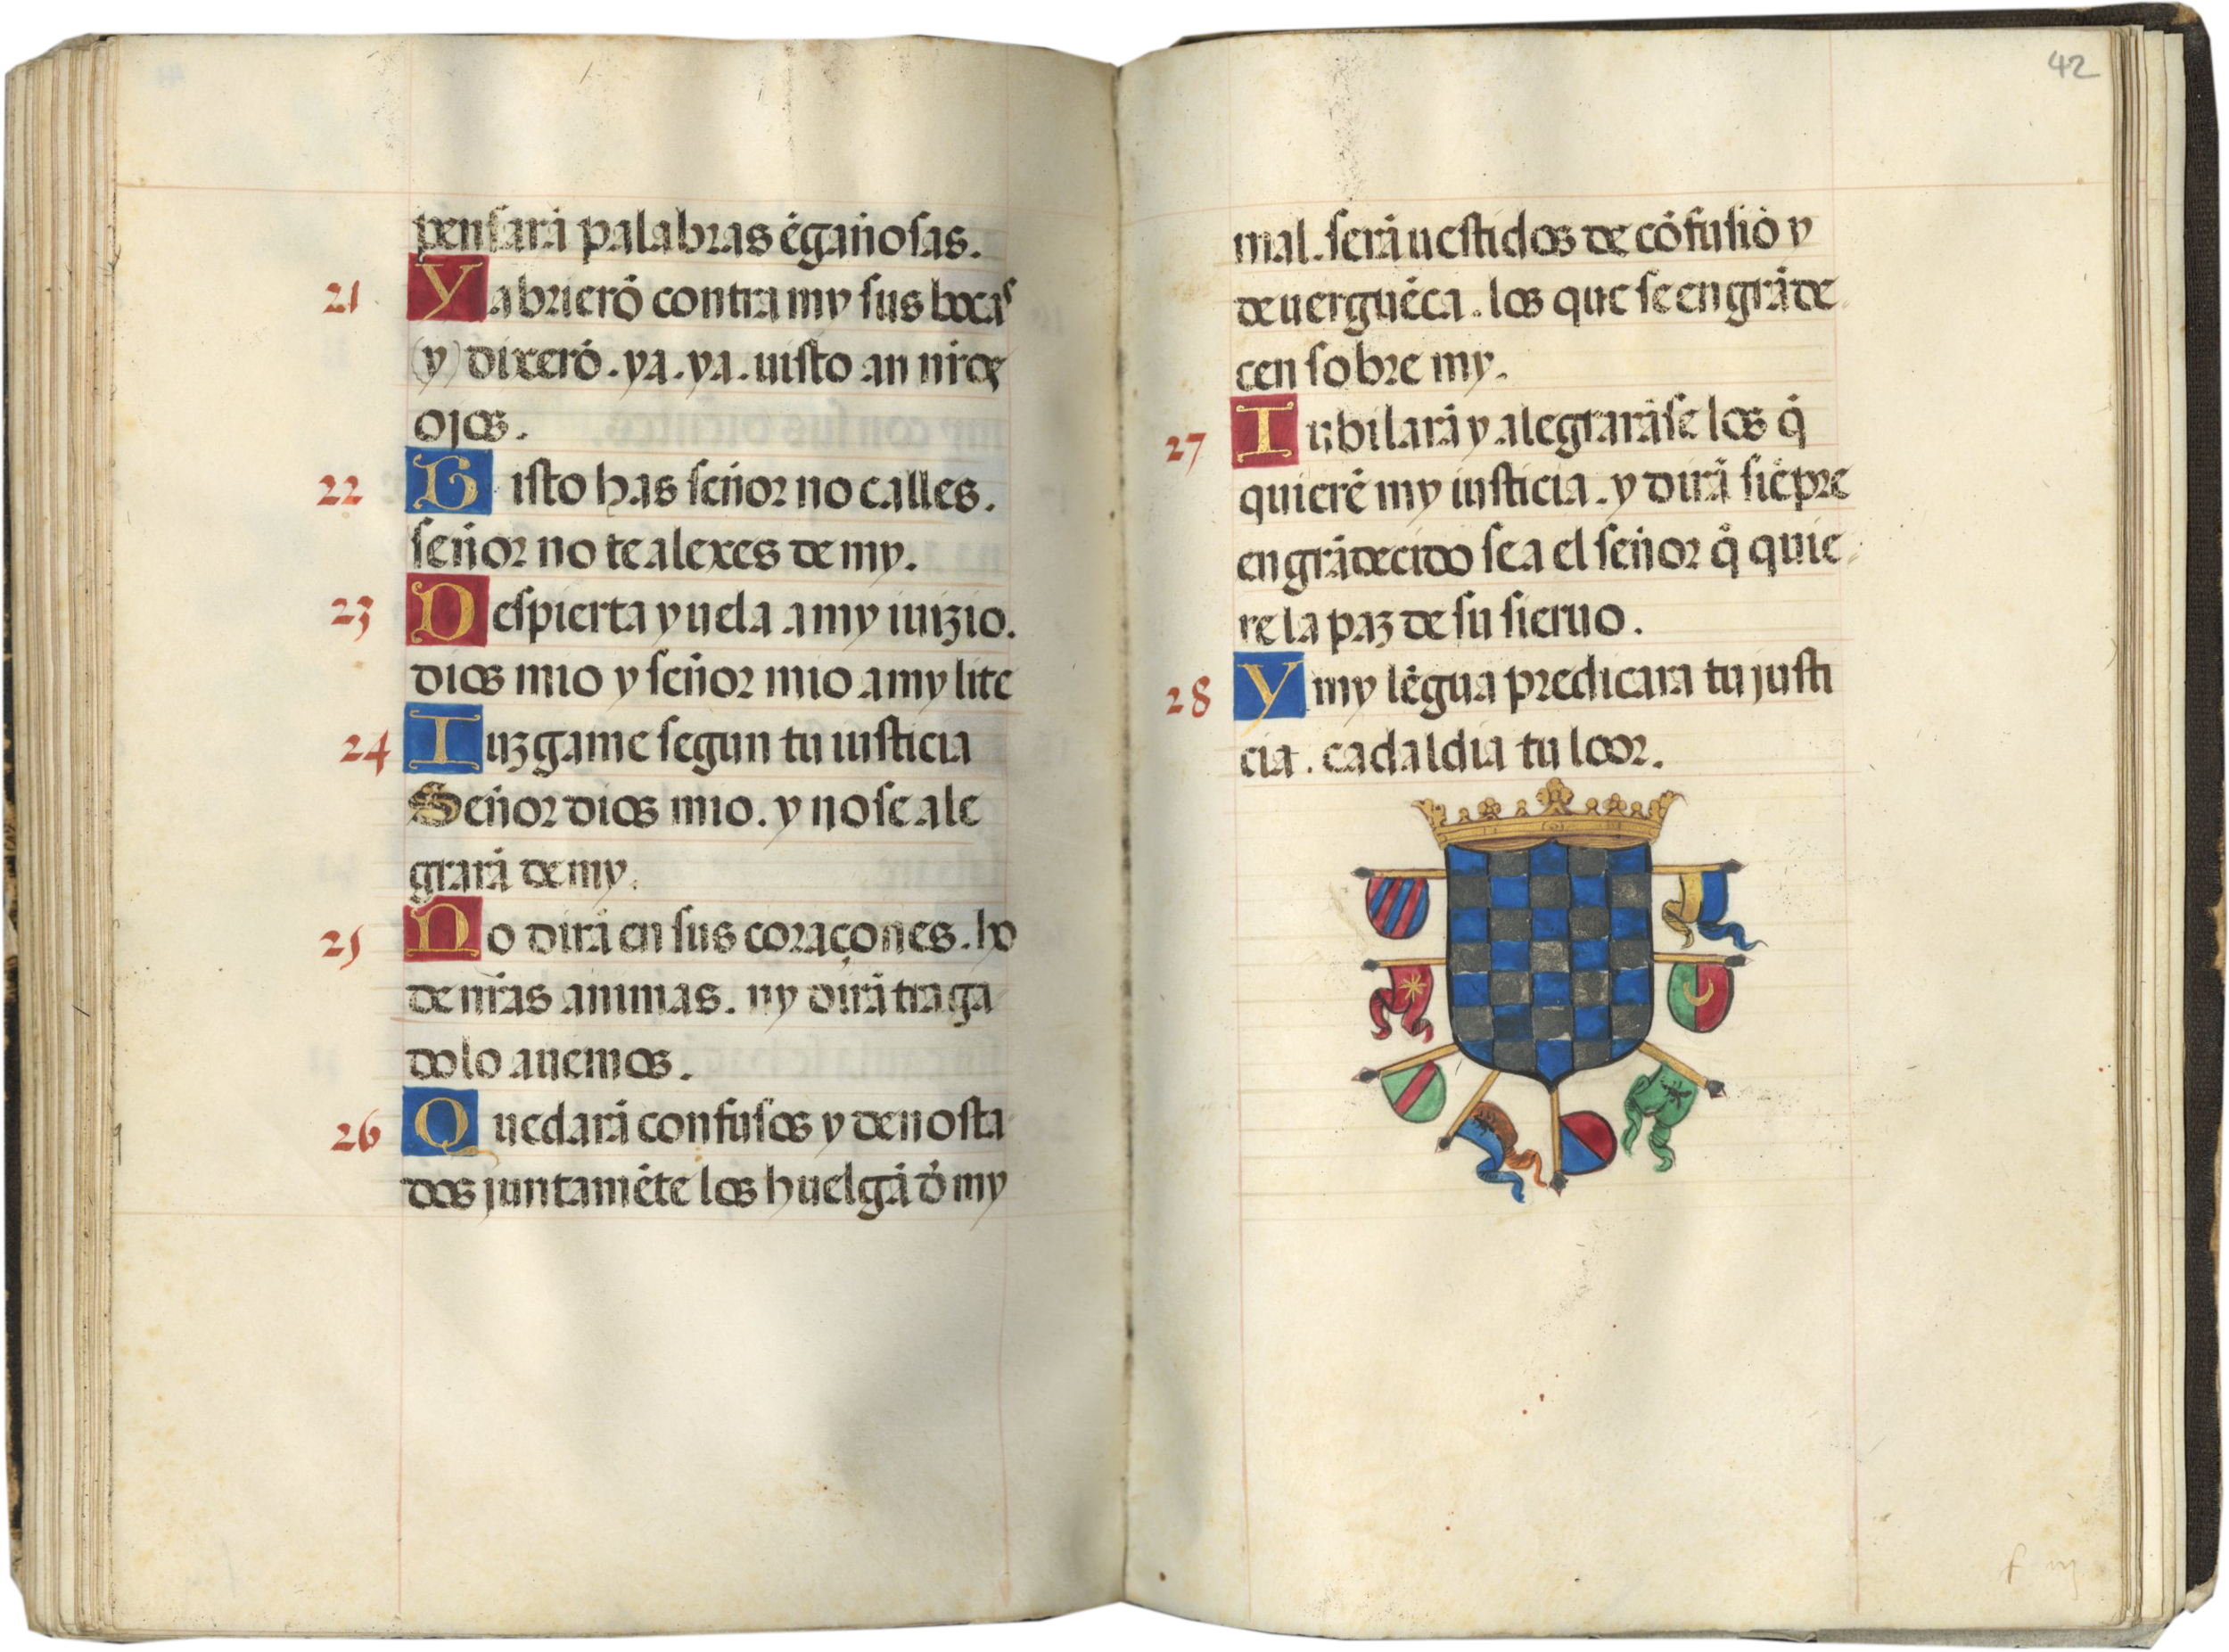 pensarā palabras ēgañosas.
21 Y abrierō contra my sus bocas
(y) dixerō. ya. ya. uisto an nr̄os
ojos.
22 U isto has señor no calles.
señor no te alexes de my.
23 D espierta y uela a my iuizio.
dios mio y señor mio a my lite
24 I uzgame segun tu iusticia
Señor dios mio. y no se ale
grarā de my.
25 N o dirā en sus coraçones. ho
de nr̄as animas. ny dirā traga
dolo auemos.
26 Q uedarā confusos y denosta
dos juntamēte los huelgā d̄ my
42
mal. serā uestidos de cōfusiō y
de uerguēca. los que se engrāde
cen sobre my.
27 I ubilarā y alegrarāse los q̄
quierē my iusticia. y dirā siēpre
engrādecido sea el señor q̄ quie
re la paz de su sieruo.
28 Y my lēgua predicara tu justi
cia. cada l dia tu loor.